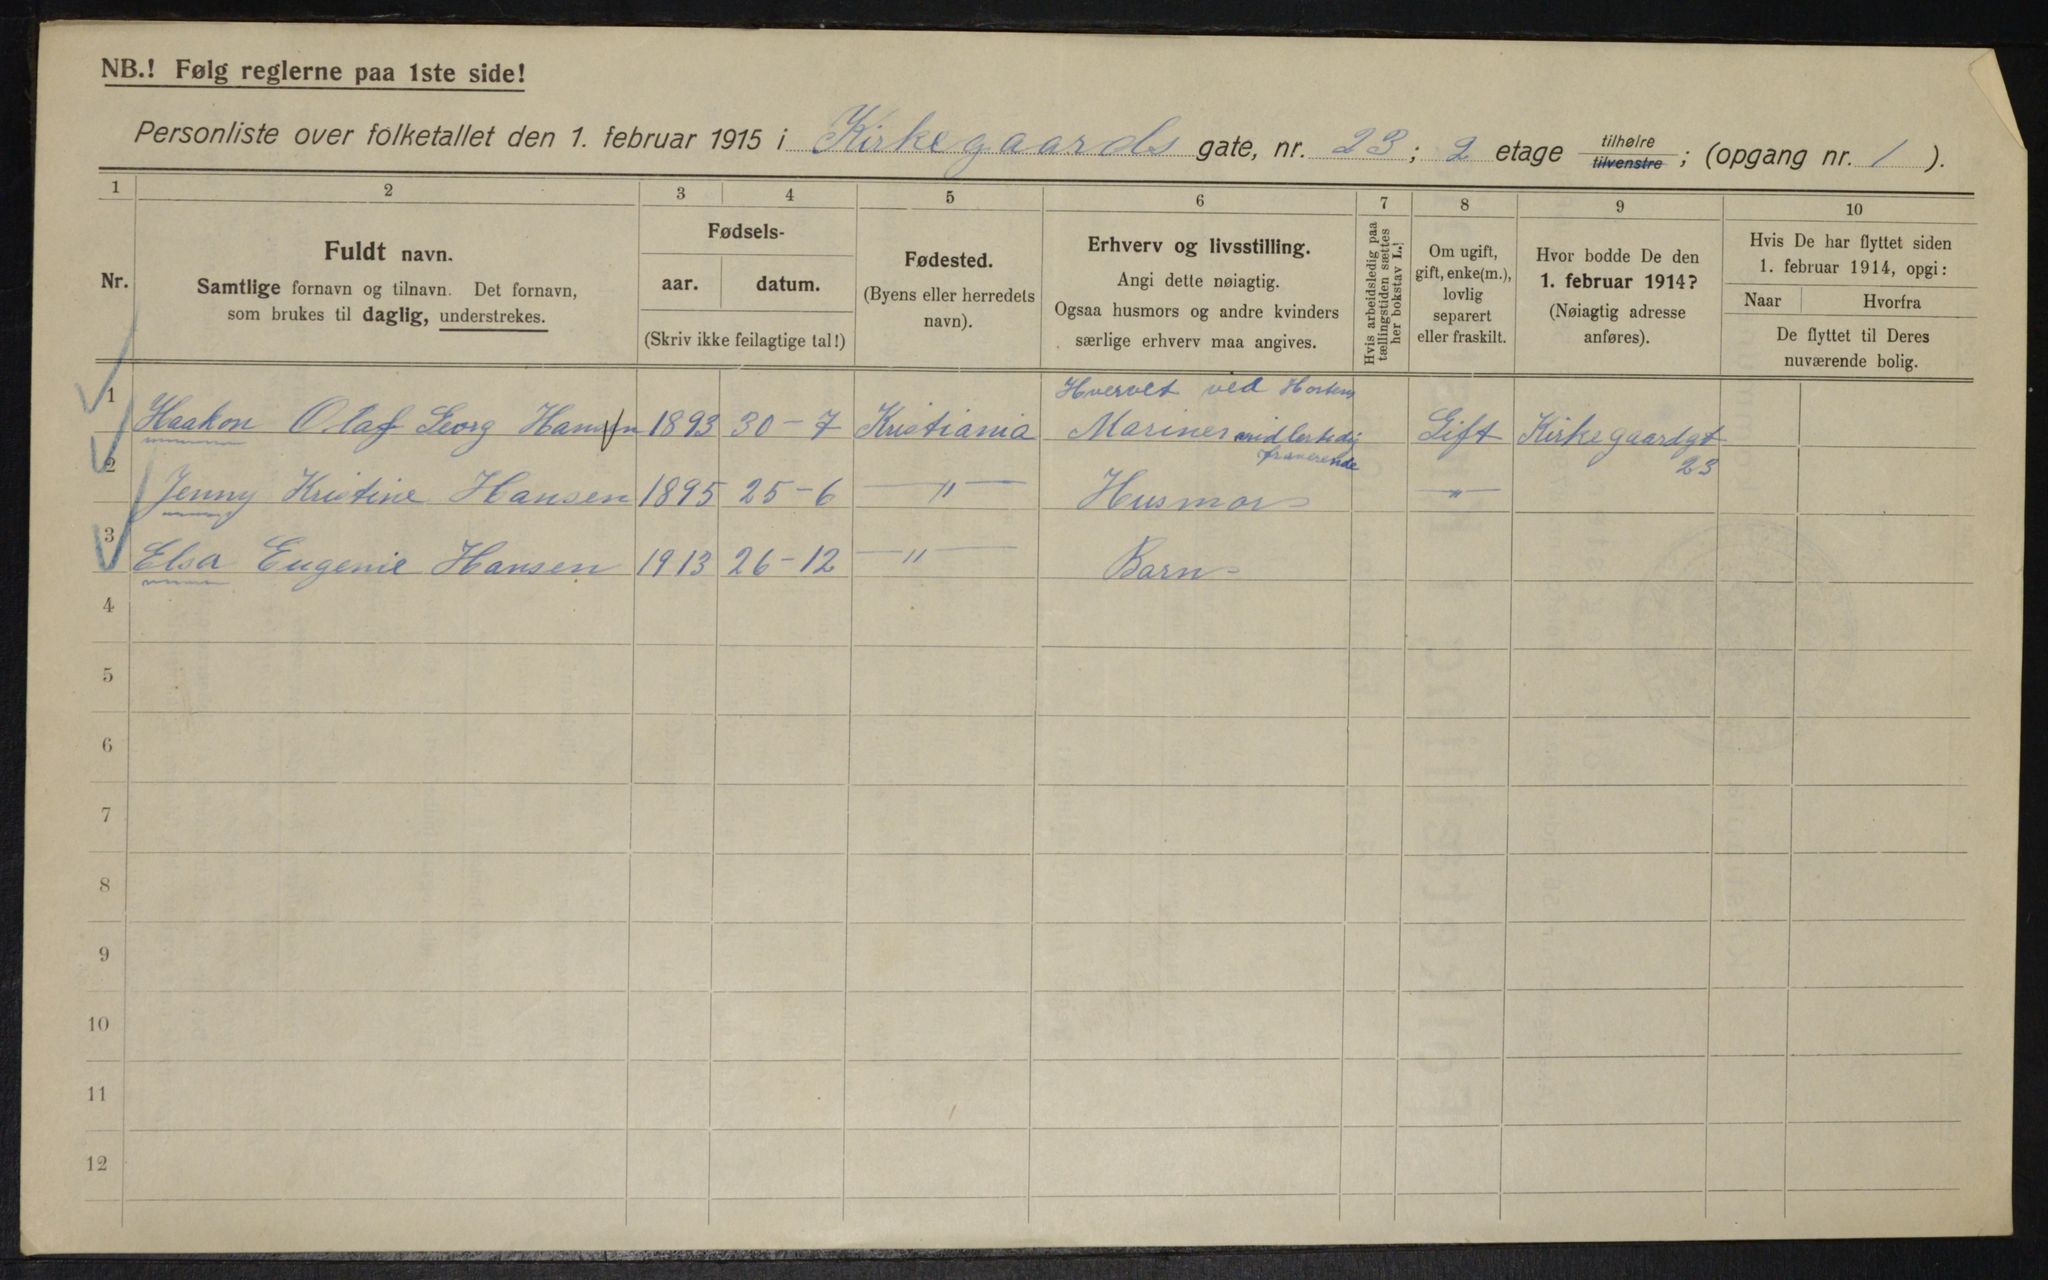 NB.! Følg reglerne paa 1ste side!
Personliste over folketallet den 1. februar 1915 i Kirkegaards gate, nr. 23; 2 etage tilhøire tilvenstre; (opgang nr. 1).
1 2 3 4 5 6 7 8 9 10
Nr.
Fuldt navn.
Samtlige fornavn og tilnavn. Det fornavn,
som brukes til daglig, understrekes.
Fødsels-
aar. datum.
(Skriv ikke feilagtige tal!)
Fødested.
(Byens eller herredets
navn).
Erhverv og livsstilling.
Angi dette nøiagtig.
Ogsaa husmors og andre kvinders
særlige erhverv maa angives.
Hvis arbeidsledig paa
tællingstiden sættes
her bokstav L.!
Om ugift,
gift, enke(m.),
lovlig
separert
eller fraskilt.
Hvor bodde De den
1. februar 1914?
(Nøiagtig adresse
anføres).
Hvis De har flyttet siden
1. februar 1914, opgi:
Naar Hvorfra
De flyttet til Deres
nuværende bolig.
Hvervet ved Horten
1 Haakon Olaf Georg Hansen 1893 30-7 Kristiania Mariner midlertidig Gift Kirkegaardgt
fraværende 23
2 Jenny Kristine Hansen 1895 25-6 -"- Husmor -"-
3 Elsa Eugenie Hansen 1913 26-12 -"- Barn
4
5
6
7
8
9
10
11
12